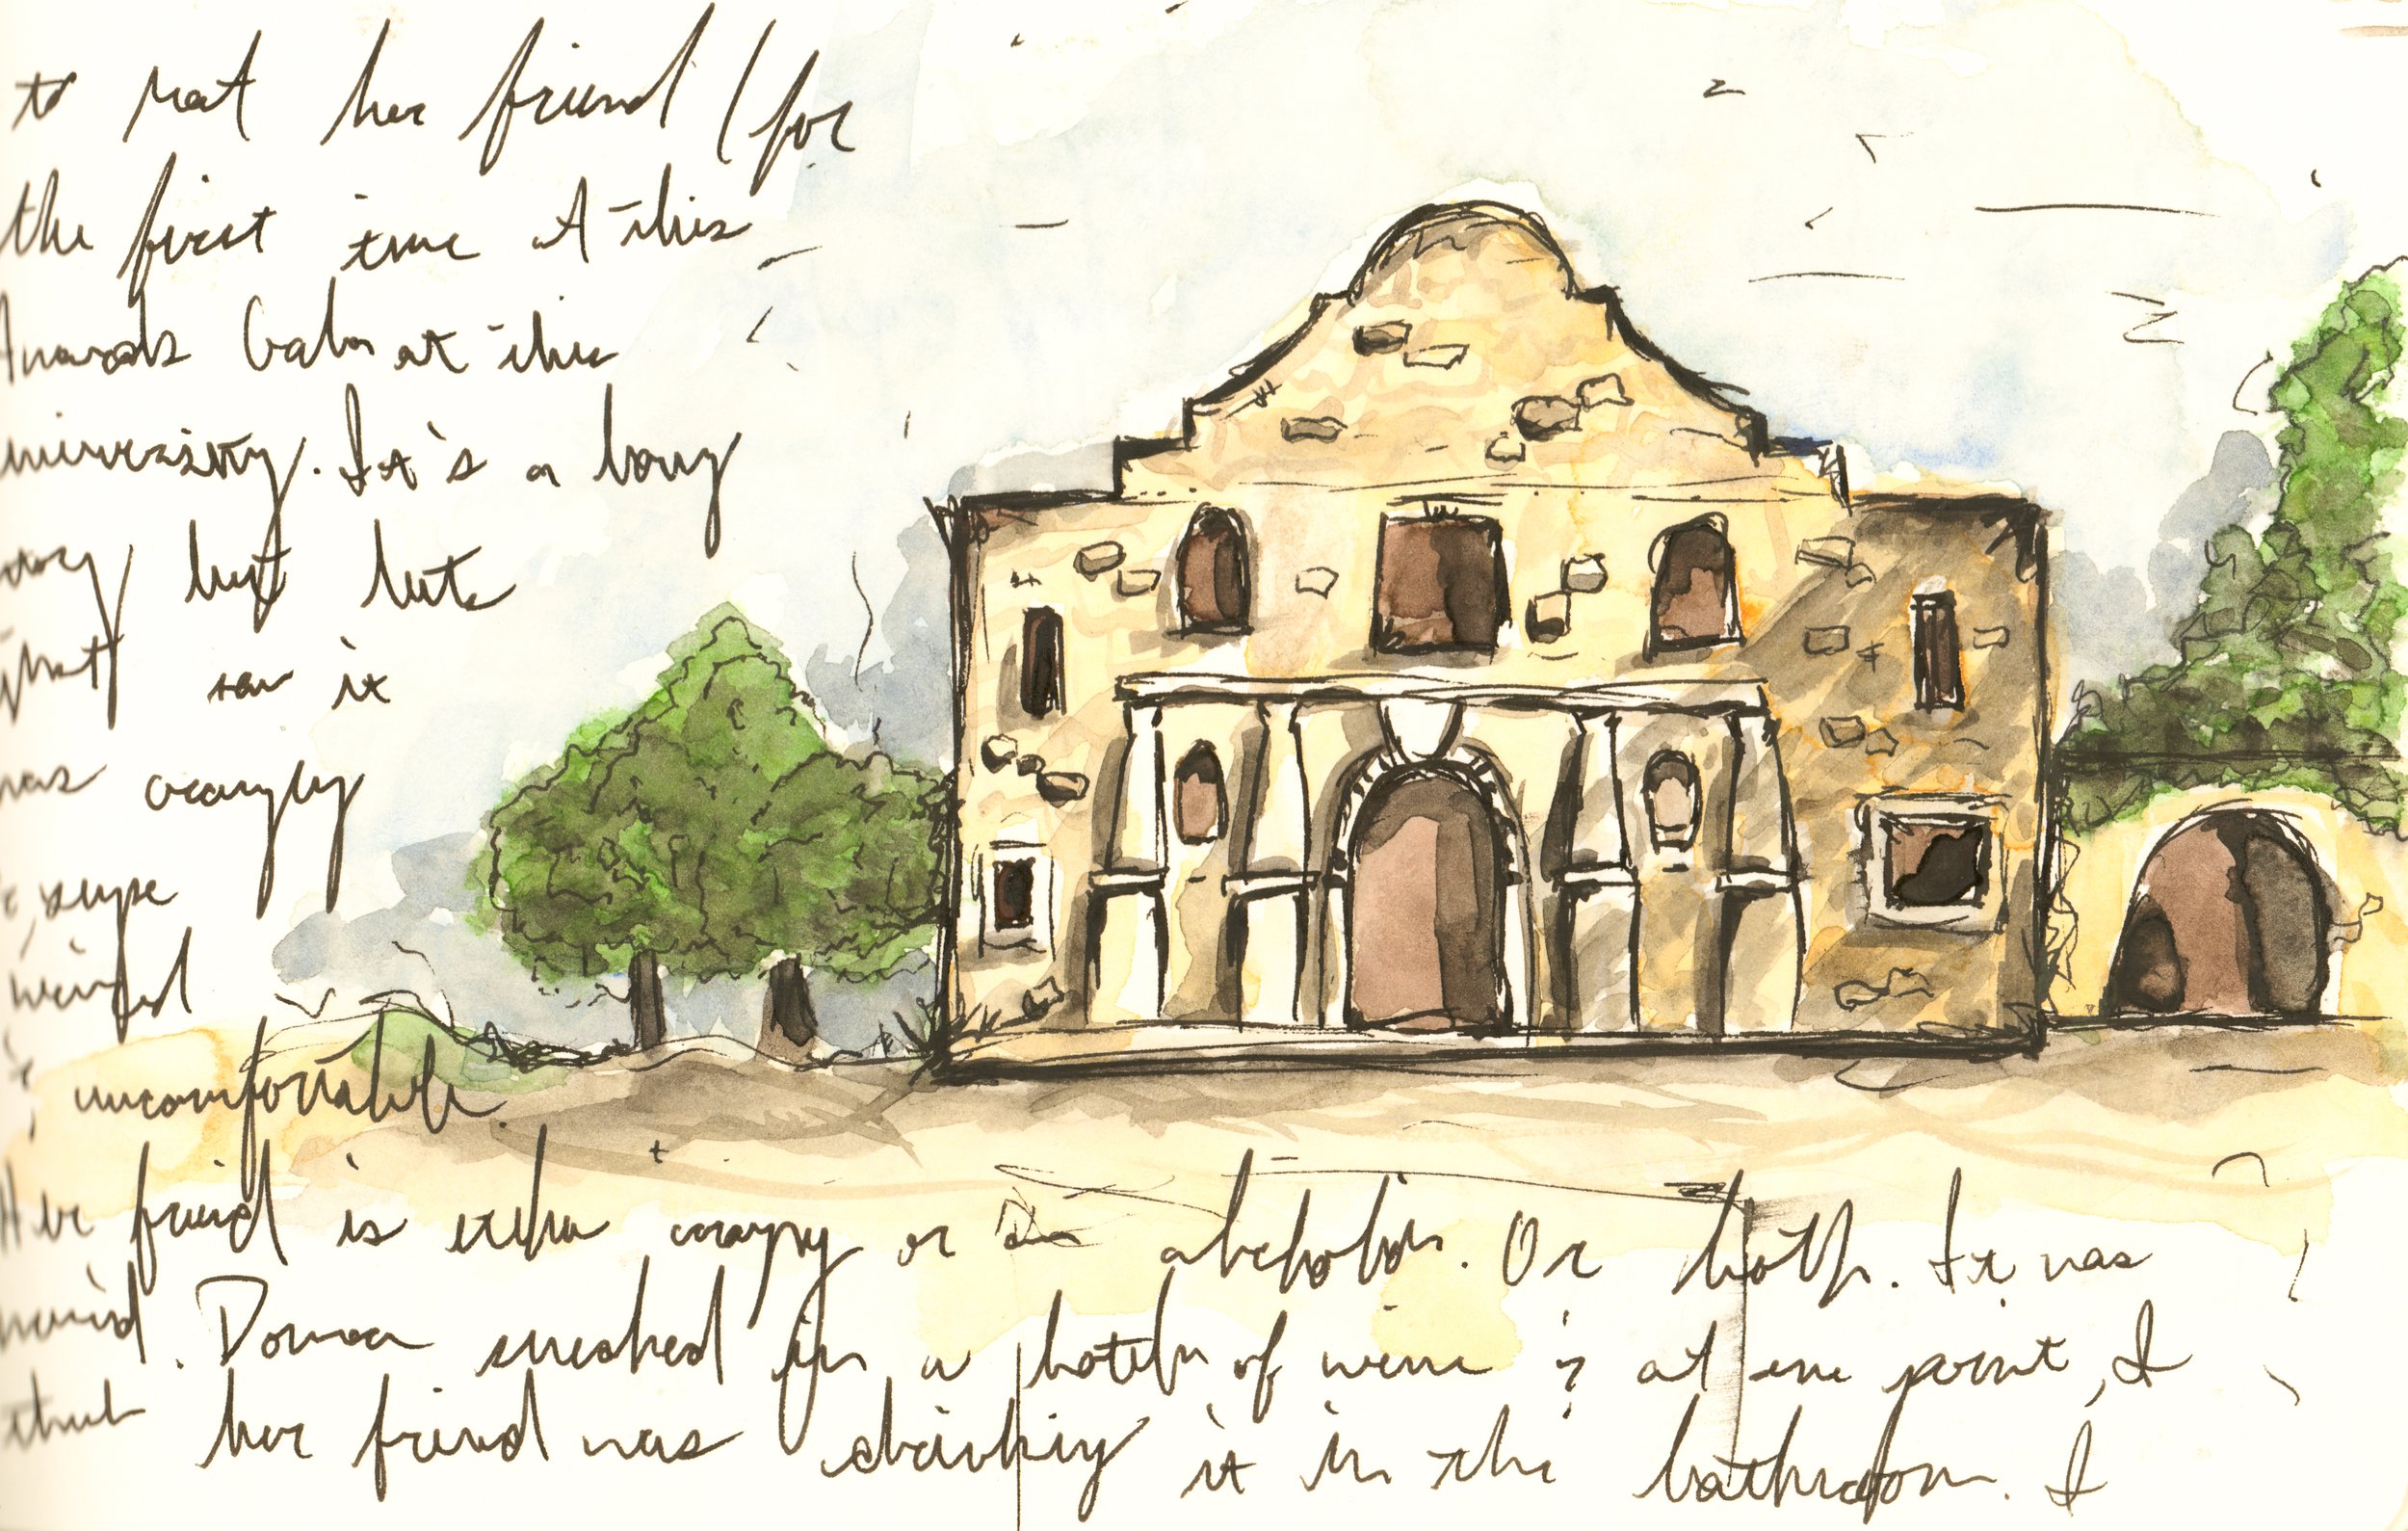 to meet her friend (for
the first time at this
Awards Gala at the
university. It's a long
story but
that saw it
was crazy
weird
& uncomfortable.
Her friend is extra crazy or alcoholic. Or both. It was
weird. Donna sneaked in a bottle of wine & at one point, I
think her friend was drinking it in the bathroom. I